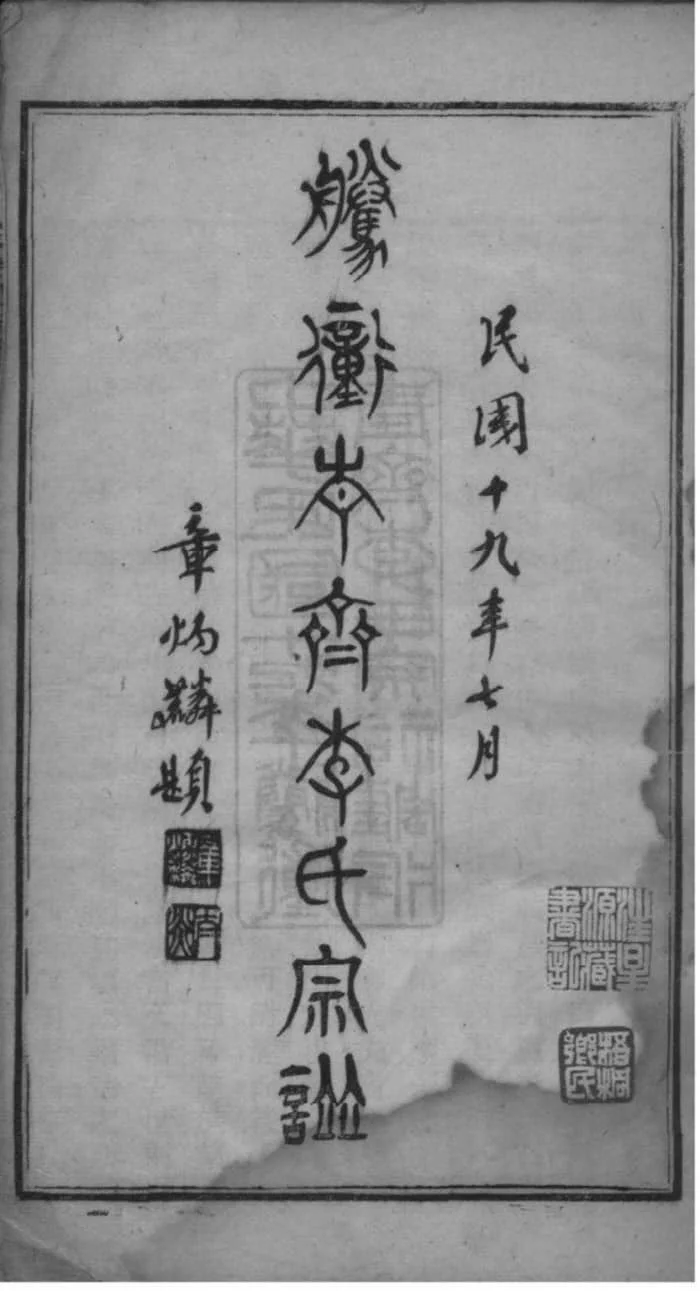 民國十九年七月
騰衝青齊李氏宗譜
章炳麟題